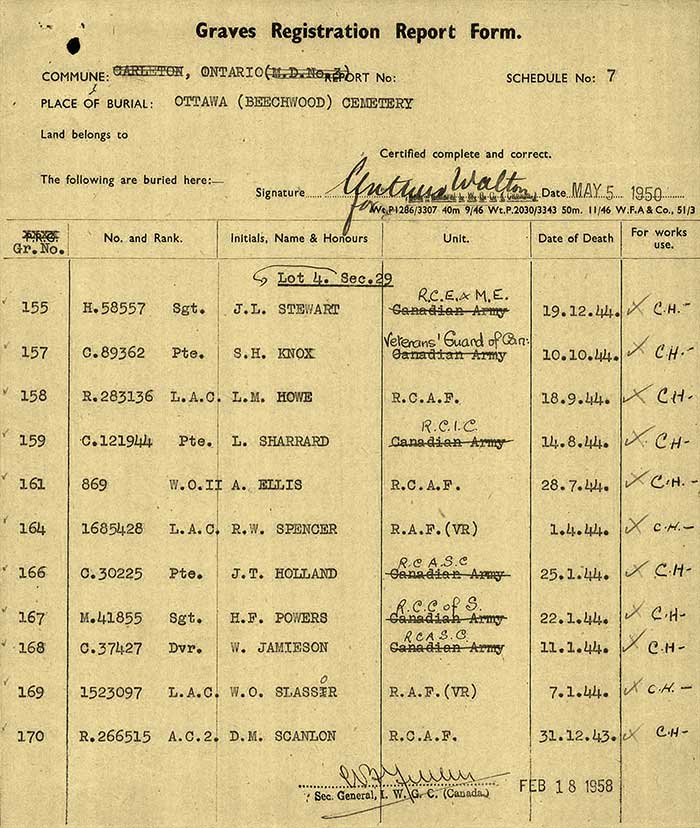 Graves Registration Report Form.
COMMUNE: CARLETON, ONTARIO (M.D.No.3) REPORT No: SCHEDULE No: 7
PLACE OF BURIAL: OTTAWA (BEECHWOOD) CEMETERY
Land belongs to
Certified complete and correct.
The following are buried here:— Signature Walton Date MAY 5 1950
for
Wt.P1286/3307 40m 9/46 Wt.P.2030/3343 50m. 11/46 W.F.A & Co., 51/3
Gr.No. No. and Rank. Initials, Name & Honours Unit. Date of Death For works use.
Lot 4. Sec.29
R.C.E. & M.E.
155 H.58557 Sgt. J.L. STEWART Canadian Army 19.12.44. C.H.-
Veterans' Guard of Can:
157 C.89362 Pte. S.H. KNOX Canadian Army 10.10.44. CH-
158 R.283136 L.A.C. L.M. HOWE R.C.A.F. 18.9.44. CH-
R.C.I.C.
159 C.121944 Pte. L. SHARRARD Canadian Army 14.8.44. CH-
161 869 W.O.II A. ELLIS R.C.A.F. 28.7.44. C.H.-
164 1685428 L.A.C. R.W. SPENCER R.A.F.(VR) 1.4.44. C.H.-
R.C.A.S.C
166 C.30225 Pte. J.T. HOLLAND Canadian Army 25.1.44. C.H-
R.C.C of S.
167 M.41855 Sgt. H.F. POWERS Canadian Army 22.1.44. C.H-
R.C.A.S.C.
168 C.37427 Dvr. W. JAMIESON Canadian Army 11.1.44. C.H-
O
169 1523097 L.A.C. W.O. SLASSIR R.A.F.(VR) 7.1.44. C.H.-
170 R.266515 A.C.2. D.M. SCANLON R.C.A.F. 31.12.43. CH-
Sec. General, I. W. G. C. (Canada) FEB 18 1958